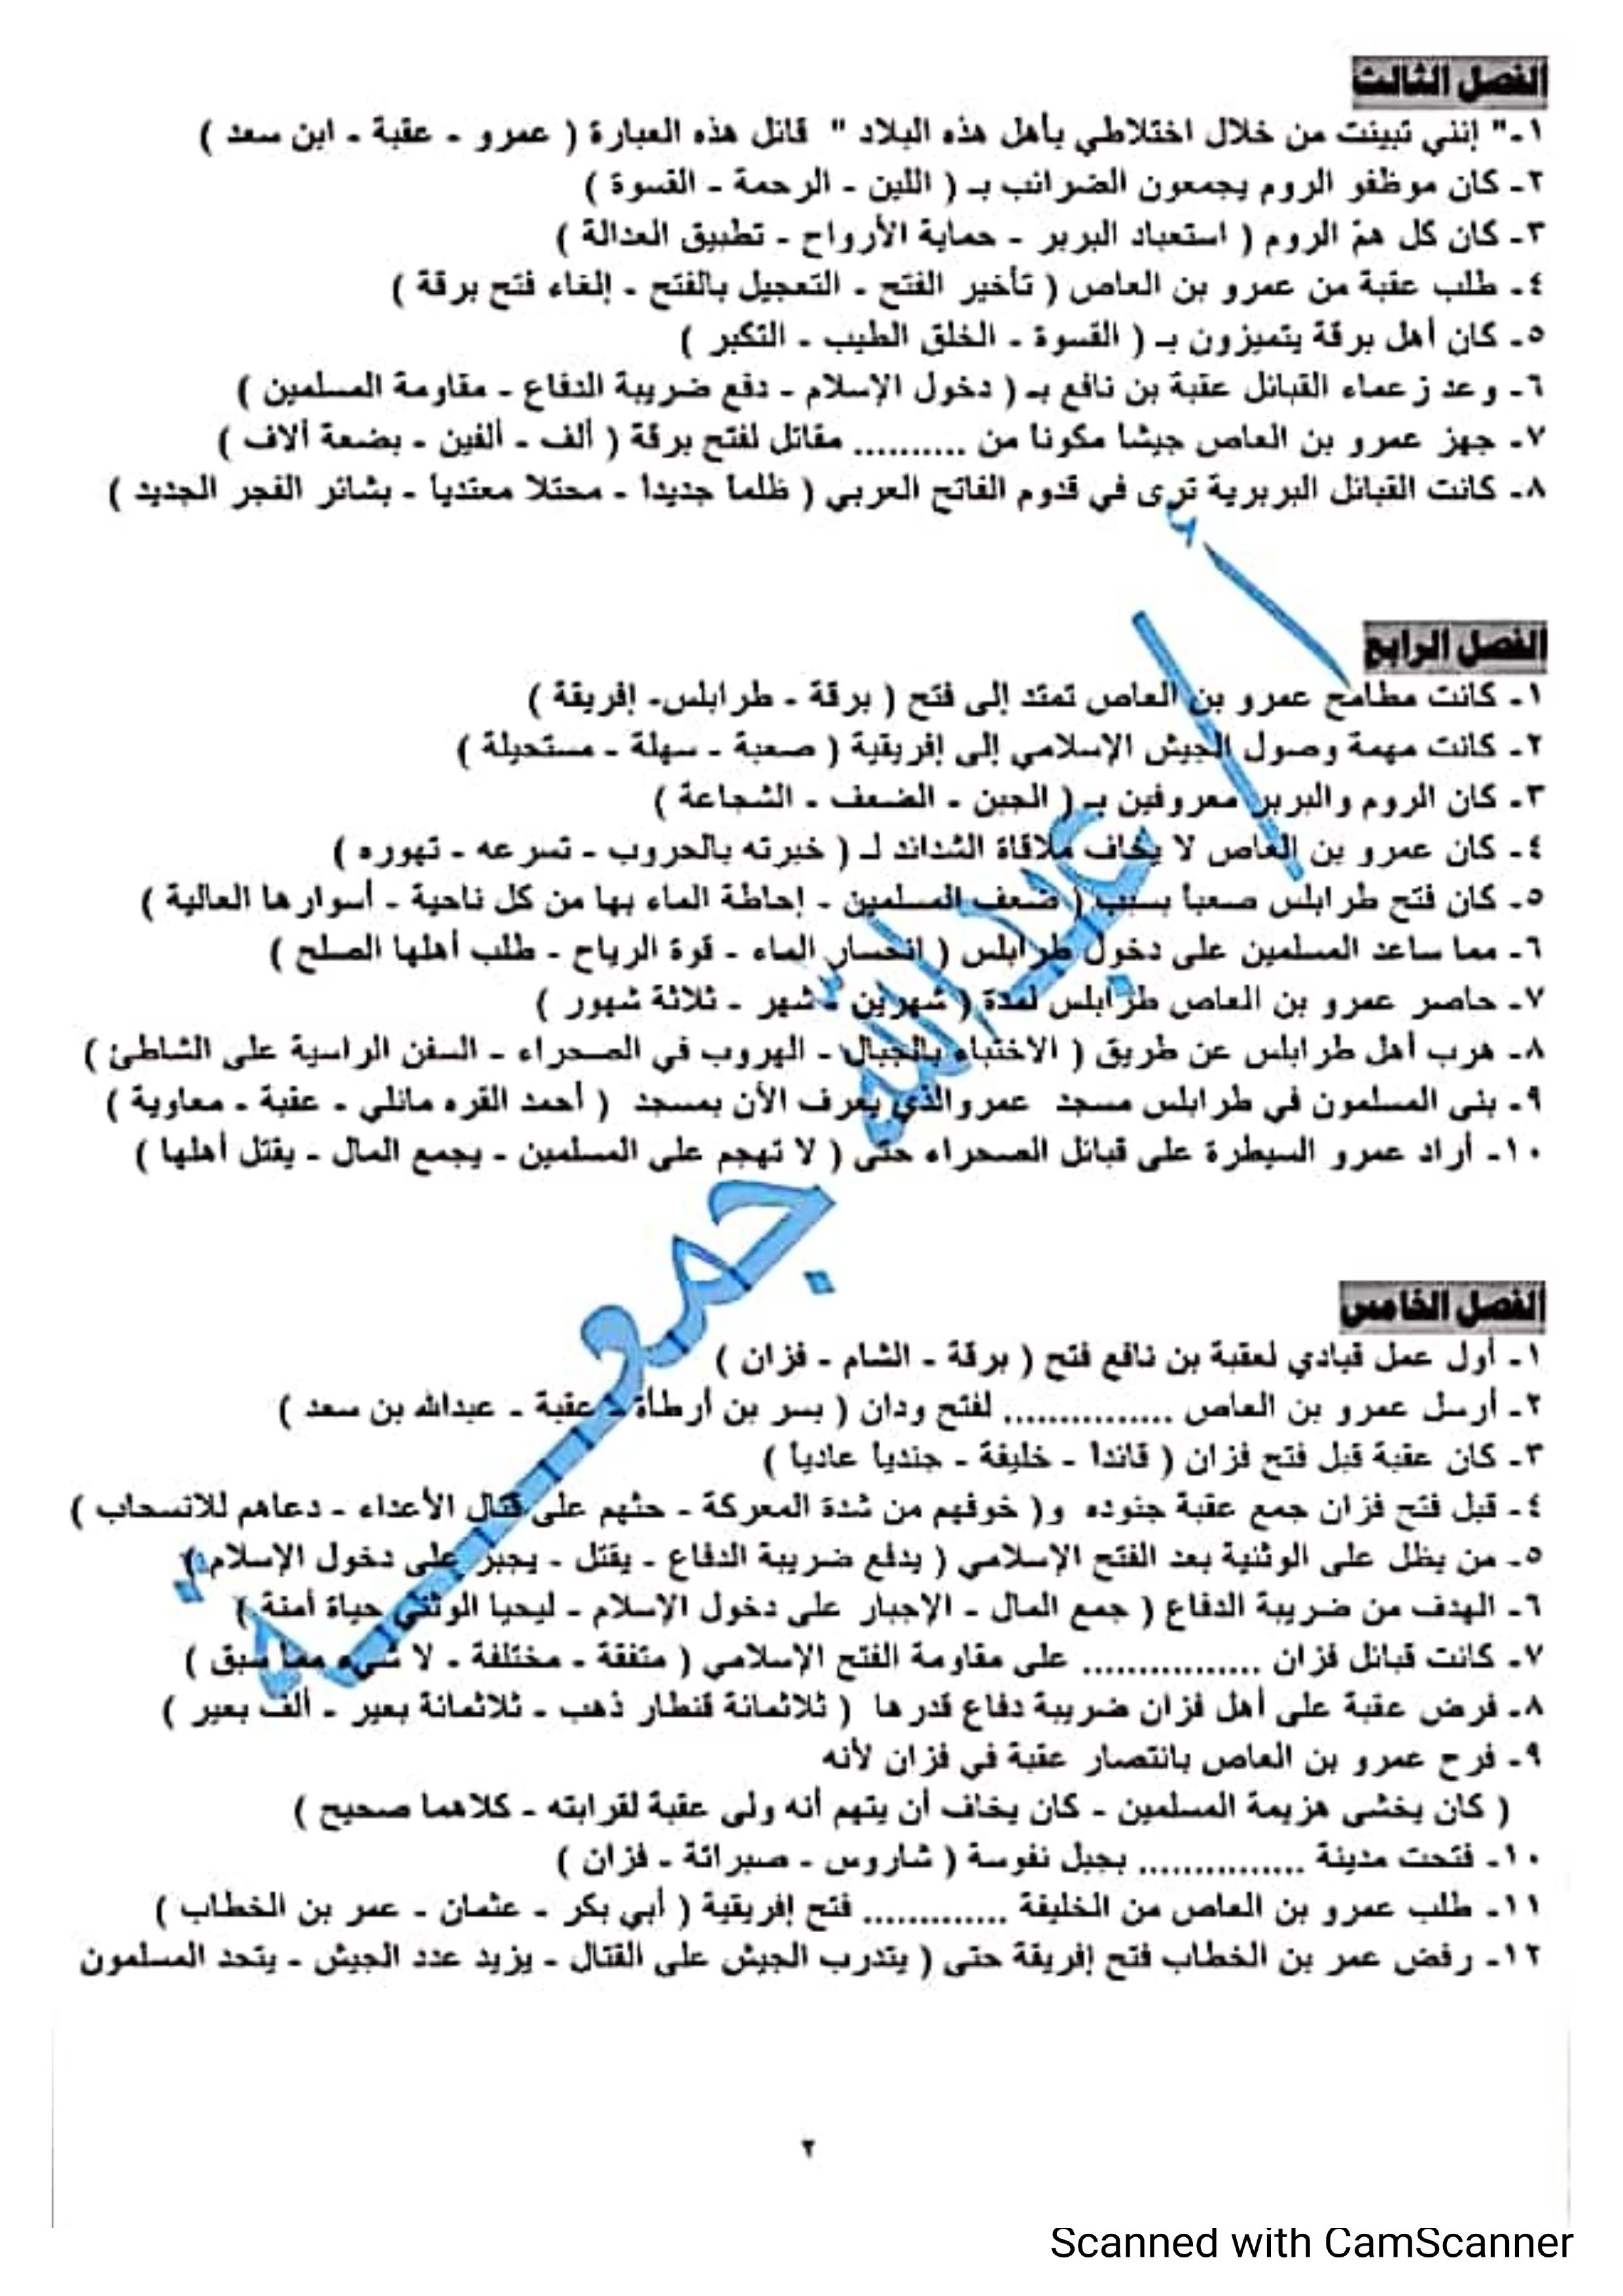 الفصل الثالث
١- " إنني تبينت من خلال اختلاطي بأهل هذه البلاد " قائل هذه العبارة ( عمرو - عقبة - ابن سعد )
٢- كان موظفو الروم يجمعون الضرائب بـ ( اللين - الرحمة - القسوة )
٣- كان كل همّ الروم ( استعباد البربر - حماية الأرواح - تطبيق العدالة )
٤- طلب عقبة من عمرو بن العاص ( تأخير الفتح - التعجيل بالفتح - إلغاء فتح برقة )
٥- كان أهل برقة يتميزون بـ ( القسوة - الخلق الطيب - التكبر )
٦- وعد زعماء القبائل عقبة بن نافع بـ ( دخول الإسلام - دفع ضريبة الدفاع - مقاومة المسلمين )
٧- جهز عمرو بن العاص جيشا مكونا من .......... مقاتل لفتح برقة ( ألف - ألفين - بضعة آلاف )
٨- كانت القبائل البربرية ترى في قدوم الفاتح العربي ( ظلماً جديداً - محتلا معتدياً - بشائر الفجر الجديد )
الفصل الرابع
١- كانت مطامح عمرو بن العاص تمتد إلى فتح ( برقة - طرابلس- إفريقة )
٢- كانت مهمة وصول الجيش الإسلامي إلى إفريقية ( صعبة - سهلة - مستحيلة )
٣- كان الروم والبربر معروفين بـ ( الجبن - الضعف - الشجاعة )
٤- كان عمرو بن العاص لا يخاف ملاقاة الشدائد لـ ( خبرته بالحروب - تسرعه - تهوره )
٥- كان فتح طرابلس صعباً بسبب ( ضعف المسلمين - إحاطة الماء بها من كل ناحية - أسوارها العالية )
٦- مما ساعد المسلمين على دخول طرابلس ( انحسار الماء - قوة الرياح - طلب أهلها الصلح )
٧- حاصر عمرو بن العاص طرابلس لمدة ( شهرين - شهر - ثلاثة شهور )
٨- هرب أهل طرابلس عن طريق ( الاختباء بالجبال - الهروب في الصحراء - السفن الراسية على الشاطئ )
٩- بنى المسلمون في طرابلس مسجد عمرو والذي يعرف الآن بمسجد ( أحمد القره مانلي - عقبة - معاوية )
١٠- أراد عمرو السيطرة على قبائل الصحراء حتى ( لا تهجم على المسلمين - يجمع المال - يقتل أهلها )
الفصل الخامس
١- أول عمل قيادي لعقبة بن نافع فتح ( برقة - الشام - فزان )
٢- أرسل عمرو بن العاص ............... لفتح ودان ( بسر بن أرطأة - عقبة - عبدالله بن سعد )
٣- كان عقبة قبل فتح فزان ( قائداً - خليفة - جندياً عادياً )
٤- قبل فتح فزان جمع عقبة جنوده و( خوفهم من شدة المعركة - حثهم على قتال الأعداء - دعاهم للانسحاب )
٥- من يظل على الوثنية بعد الفتح الإسلامي ( يدفع ضريبة الدفاع - يقتل - يجبر على دخول الإسلام )
٦- الهدف من ضريبة الدفاع ( جمع المال - الإجبار على دخول الإسلام - ليحيا الوثني حياة آمنة )
٧- كانت قبائل فزان ................ على مقاومة الفتح الإسلامي ( متفقة - مختلفة - لا شيء مما سبق )
٨- فرض عقبة على أهل فزان ضريبة دفاع قدرها ( ثلاثمائة قنطار ذهب - ثلاثمائة بعير - ألف بعير )
٩- فرح عمرو بن العاص بانتصار عقبة في فزان لأنه
( كان يخشى هزيمة المسلمين - كان يخاف أن يتهم أنه ولى عقبة لقرابته - كلاهما صحيح )
١٠- فتحت مدينة ............... بجبل نفوسة ( شاروس - صبراتة - فزان )
١١- طلب عمرو بن العاص من الخليفة ............. فتح إفريقية ( أبي بكر - عثمان - عمر بن الخطاب )
١٢- رفض عمر بن الخطاب فتح إفريقة حتى ( يتدرب الجيش على القتال - يزيد عدد الجيش - يتحد المسلمون
أ / عبدالله جمعة
٢
Scanned with CamScanner